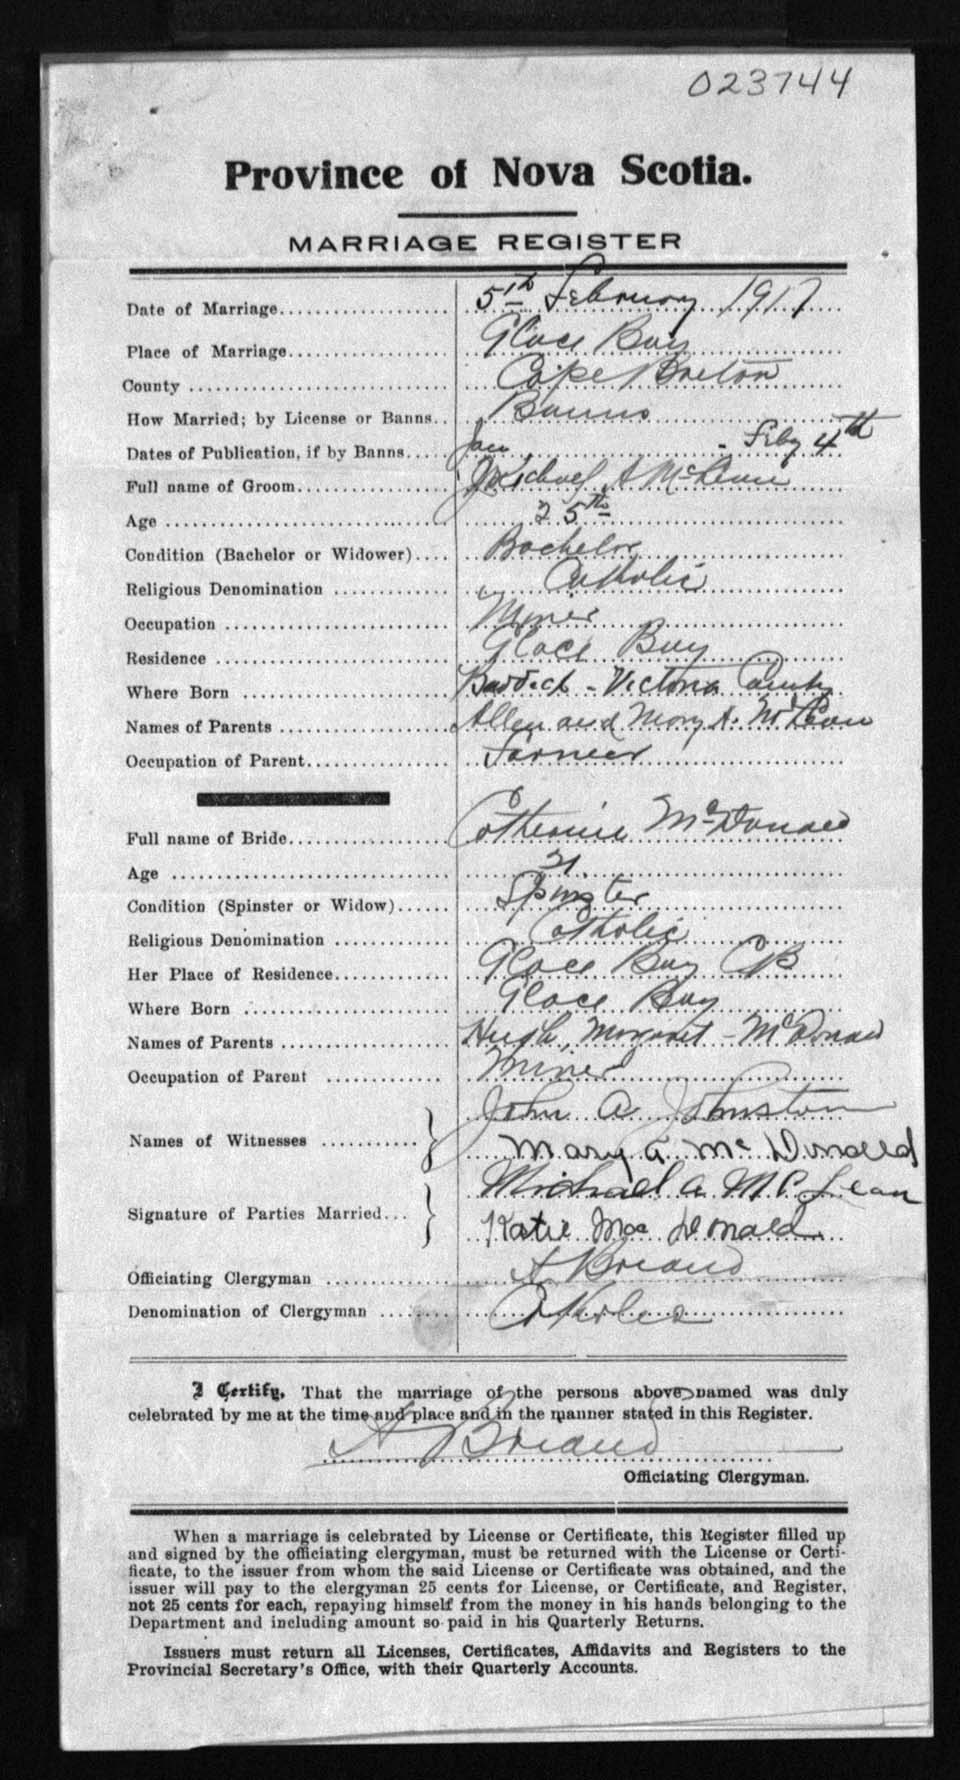 023744
Province of Nova Scotia.
MARRIAGE REGISTER
Date of Marriage.................... 5th February 1917
Place of Marriage.................. Glace Bay
County ............................ Cape Breton
How Married; by License or Banns.. Banns
Dates of Publication, if by Banns.... Jan - Feby 4th
Full name of Groom................. Michael A McLean
Age ............................... 25th
Condition (Bachelor or Widower).... Bachelor
Religious Denomination ............ Catholic
Occupation ........................ Miner
Residence ......................... Glace Bay
Where Born ........................ Baddeck - Victoria County
Names of Parents .................. Allen and Mary A. McLean
Occupation of Parent............... Farmer
Full name of Bride................. Catherine McDonald
Age ............................... 21.
Condition (Spinster or Widow)...... Spinster
Religious Denomination ............ Catholic
Her Place of Residence............. Glace Bay CB
Where Born ........................ Glace Bay
Names of Parents .................. Hugh, Margaret - McDonald
Occupation of Parent .............. Miner
John A Johnston
Names of Witnesses ........... Mary A Mc Donald
Michael A McLean
Signature of Parties Married... Katie Mac Donald
Officiating Clergyman ............. A Briand
Denomination of Clergyman ......... Catholic
I Certify, That the marriage of the persons above named was duly
celebrated by me at the time and place and in the manner stated in this Register.
A Briand
Officiating Clergyman.
When a marriage is celebrated by License or Certificate, this Register filled up
and signed by the officiating clergyman, must be returned with the License or Certi-
ficate, to the issuer from whom the said License or Certificate was obtained, and the
issuer will pay to the clergyman 25 cents for License, or Certificate, and Register,
not 25 cents for each, repaying himself from the money in his hands belonging to the
Department and including amount so paid in his Quarterly Returns.
Issuers must return all Licenses, Certificates, Affidavits and Registers to the
Provincial Secretary's Office, with their Quarterly Accounts.